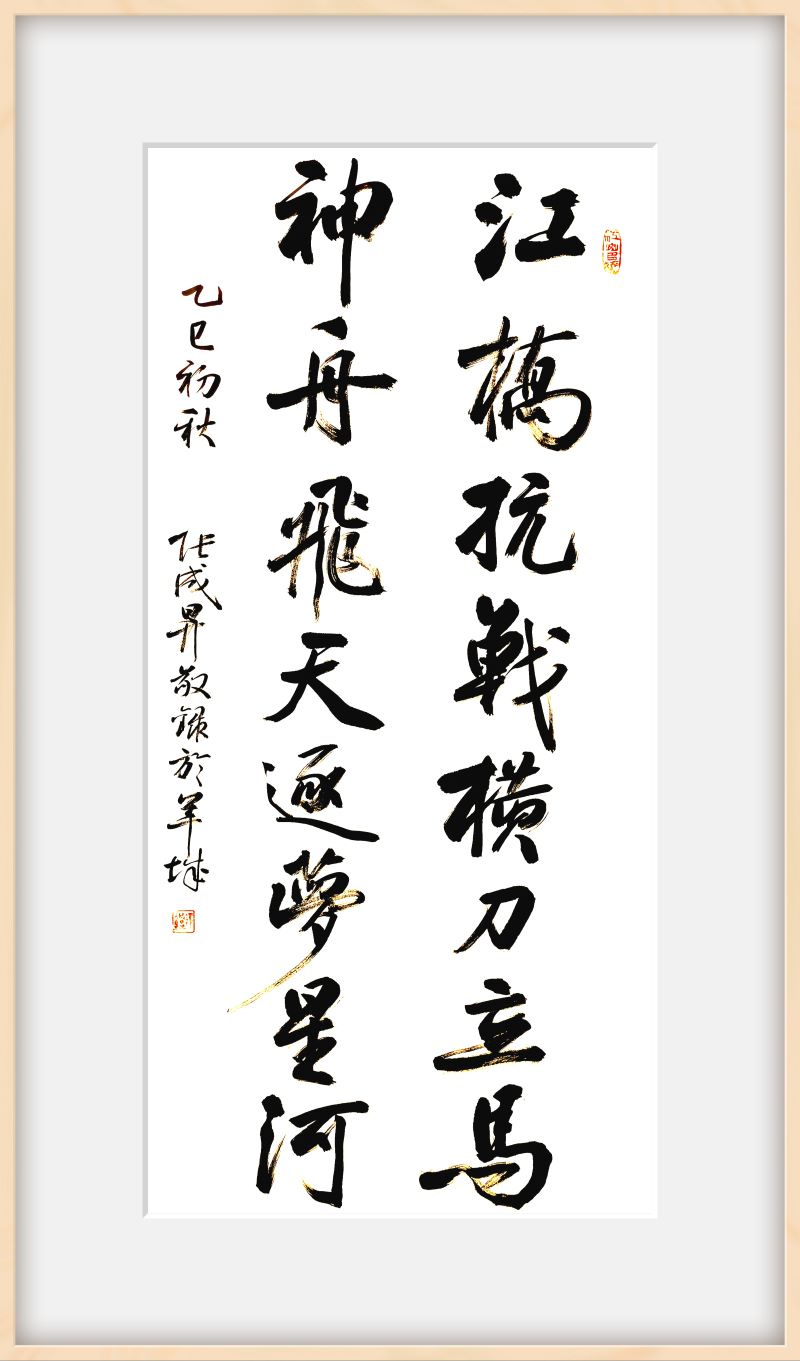 江橋抗戰橫刀立馬
神舟飛天逐夢星河
乙巳初秋 張成昇敬錄於羊城